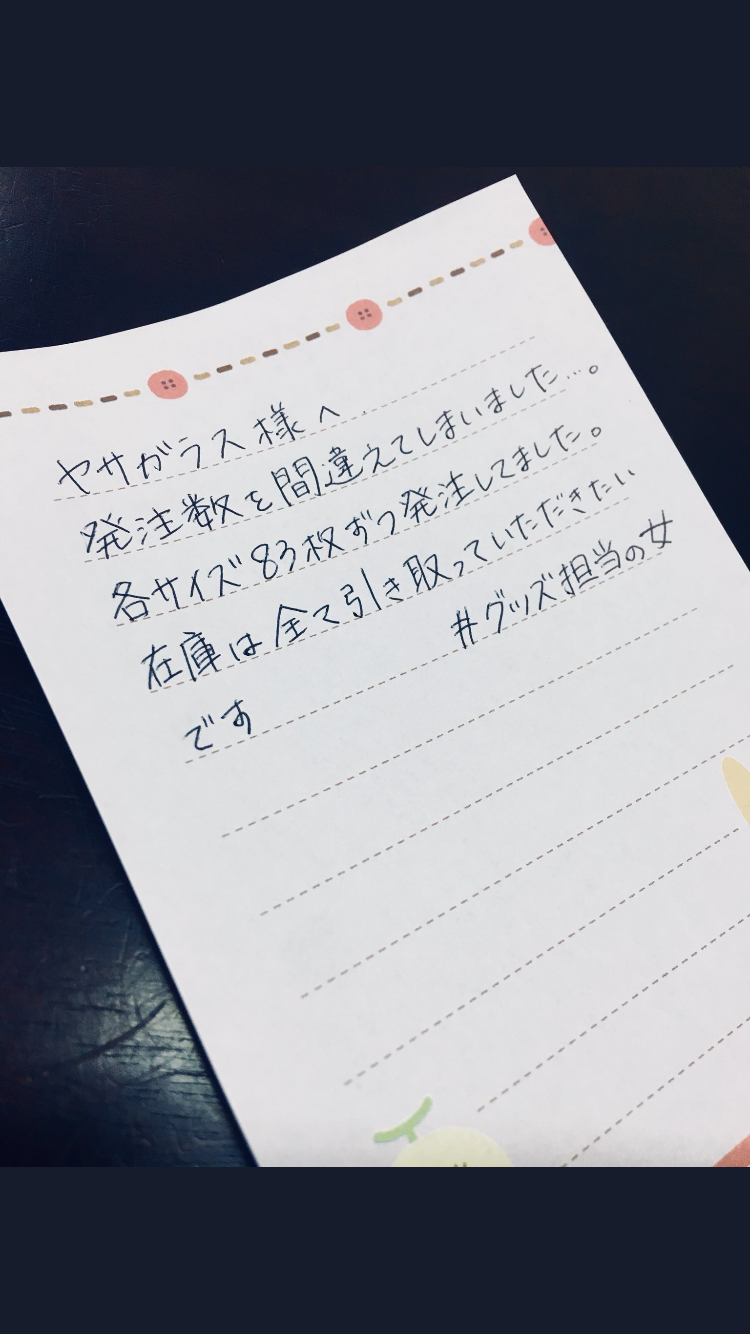 ヤサガラス様へ
発注数を間違えてしまいました…。
各サイズ83枚ずつ発注してました。
在庫は全て引き取っていただきたい
です
#グッズ担当の女